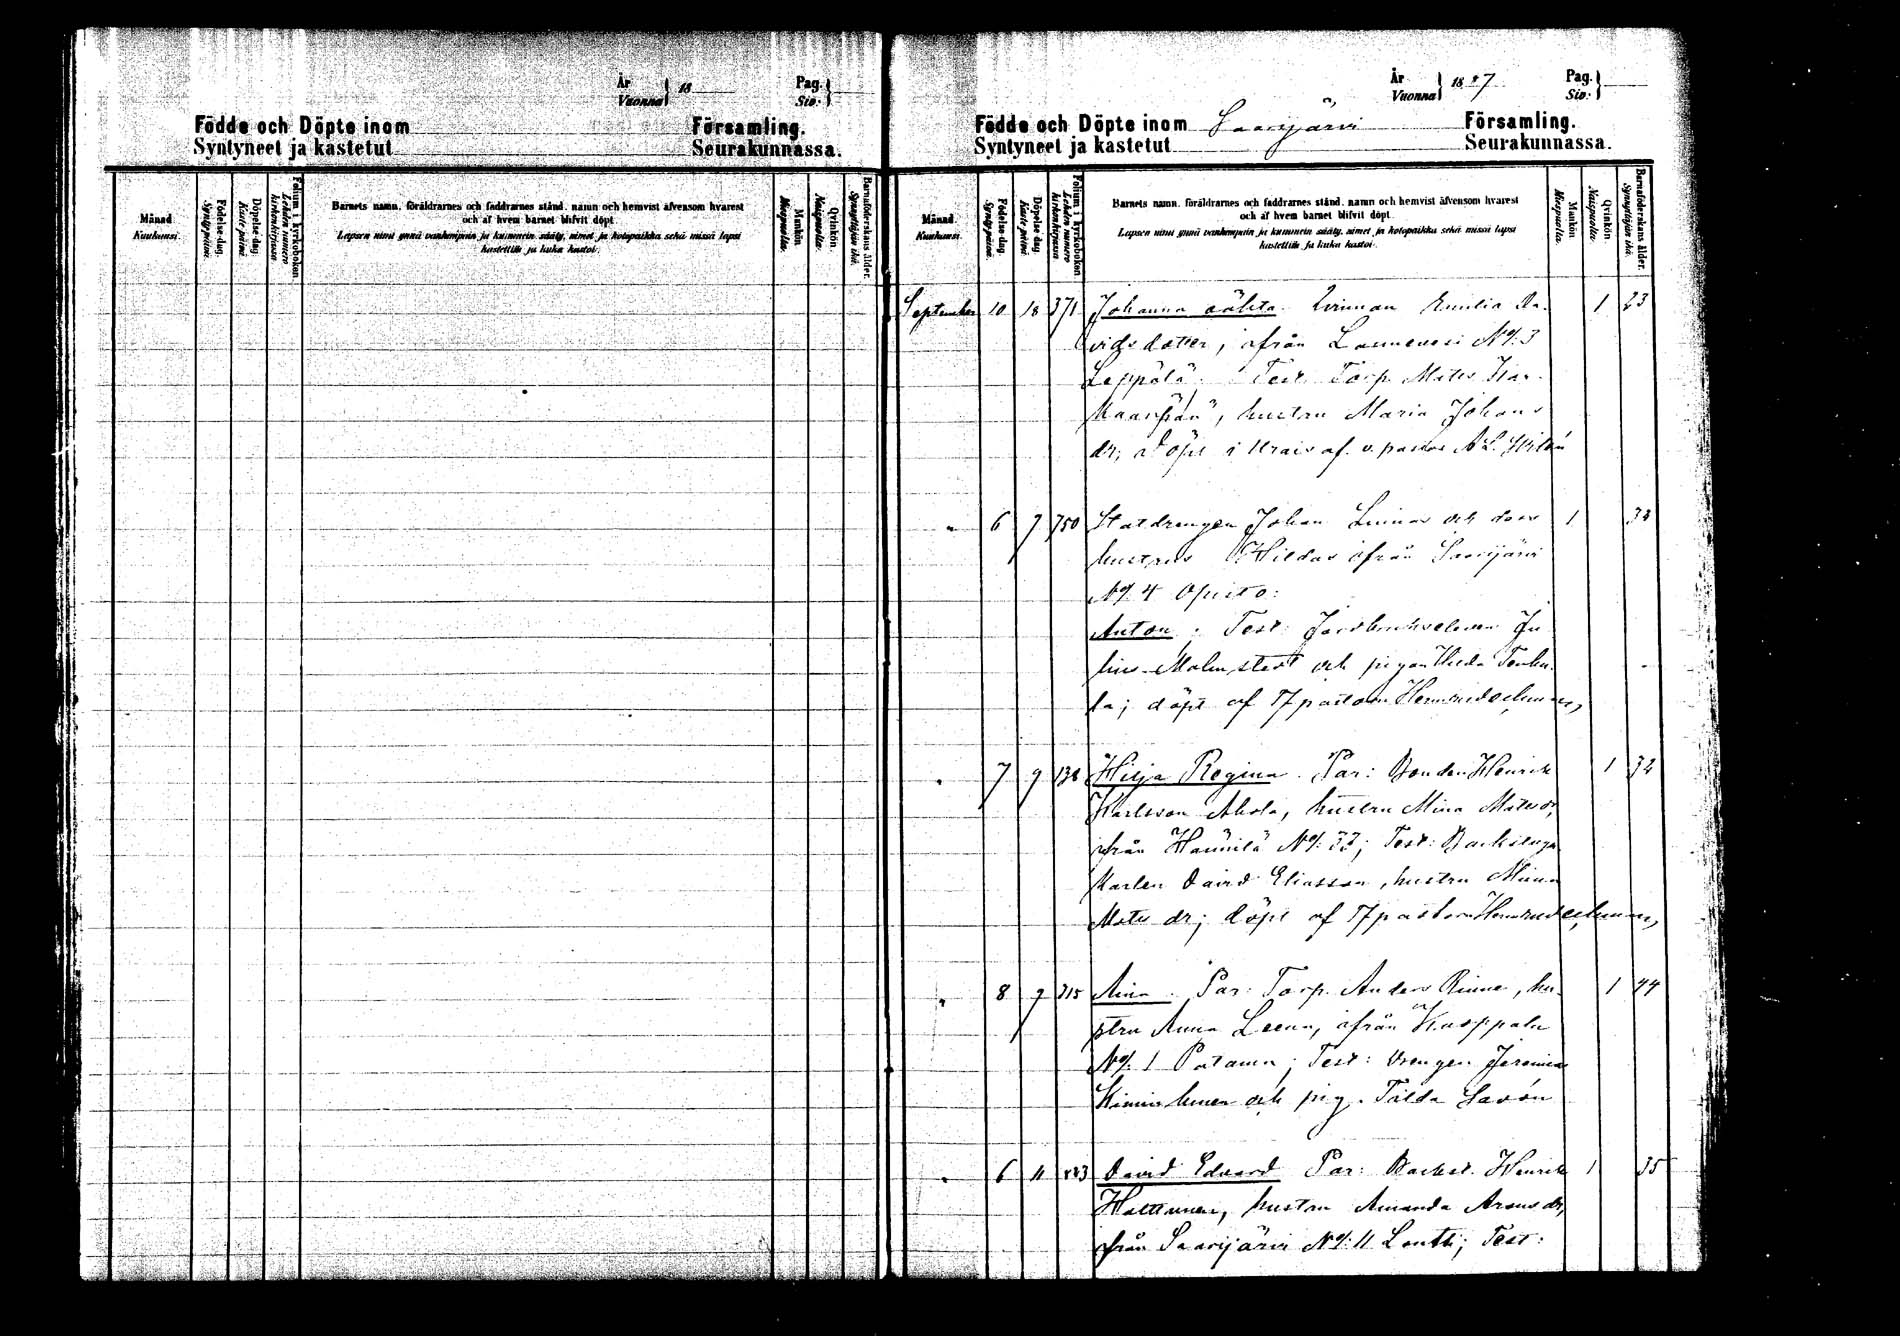 År
Vuonna } 18
Pag.
Siv: }
Födde och Döpte inom Församling.
Syntyneet ja kastetut Seurakunnassa.
Månad.
Kuukausi.
Födelse-dag.
Synty-päivä.
Döpelse-dag.
Kaste-päivä.
Folium i kyrkoboken.
Lehden numero kirkonkirjassa.
Barnets namn, föräldrarnes och faddrarnes stånd, namn och hemvist äfvensom hvarest
och af hvem barnet blifvit döpt.
Lapsen nimi ynnä vanhempain ja kummein sääty, nimet ja kotopaikka sekä missä lapsi
kastettiin ja kuka kastoi.
Mankön.
Miespuolia.
Qvinkön.
Naispuolia.
Barnaföderskans ålder.
Synnyttäjän ikä.
År
Vuonna } 18 7
Pag.
Siv: }
Födde och Döpte inom Saarijärvi Församling.
Syntyneet ja kastetut Seurakunnassa.
Månad.
Kuukausi.
Födelse-dag.
Synty-päivä.
Döpelse-dag.
Kaste-päivä.
Folium i kyrkoboken.
Lehden numero kirkonkirjassa.
Barnets namn, föräldrarnes och faddrarnes stånd, namn och hemvist äfvensom hvarest
och af hvem barnet blifvit döpt.
Lapsen nimi ynnä vanhempain ja kummein sääty, nimet ja kotopaikka sekä missä lapsi
kastettiin ja kuka kastoi.
Mankön.
Miespuolia.
Qvinkön.
Naispuolia.
Barnaföderskans ålder.
Synnyttäjän ikä.
September 10 18 371 Johanna oäkta. Qvinnan Emilia Da- 1 23
vidsdotter, ifrån Lannevesi No/: 3
Leppälä; Test: Torp. Mats
hustru Maria Johans
dr, döpt i af v. pastor A. L.
" 6 7 750 Statdrengen Johan Linnas och dess 1 32
hustrus Hildas ifrån Saarijärvi
No/: 4 Opisto:
Anton; Test: Jordbrukseleven Ju
lius Malmstedt och pigan Hilda
la; döpt af pastorn
" 7 9 138 Hilja Regina. Par: Bonden Henrik 1 32
Karlsson Ahola, hustru Mina Matsdr,
ifrån Hännilä No/: 33; Test: Backstugu
karlen David Eliasson, hustru Miina
Mats dr; döpt af pastorn
" 8 9 315 Aina. Par: Torp. Anders Rinne, hu- 1 44
stru Anna Leena, ifrån
No/: 1 Patama; Test: Drengen Jeremias
och pig. Tilda Savón
" 6 11 David Edvard Par: Backst. Henrik 1 35
hustru Amanda
ifrån Saarijärvi No/: 11 Test: